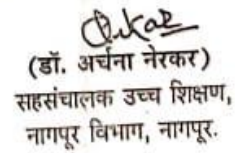 (डॉ. अर्चना नेरकर)
सहसंचालक उच्च शिक्षण,
नागपूर विभाग, नागपूर.